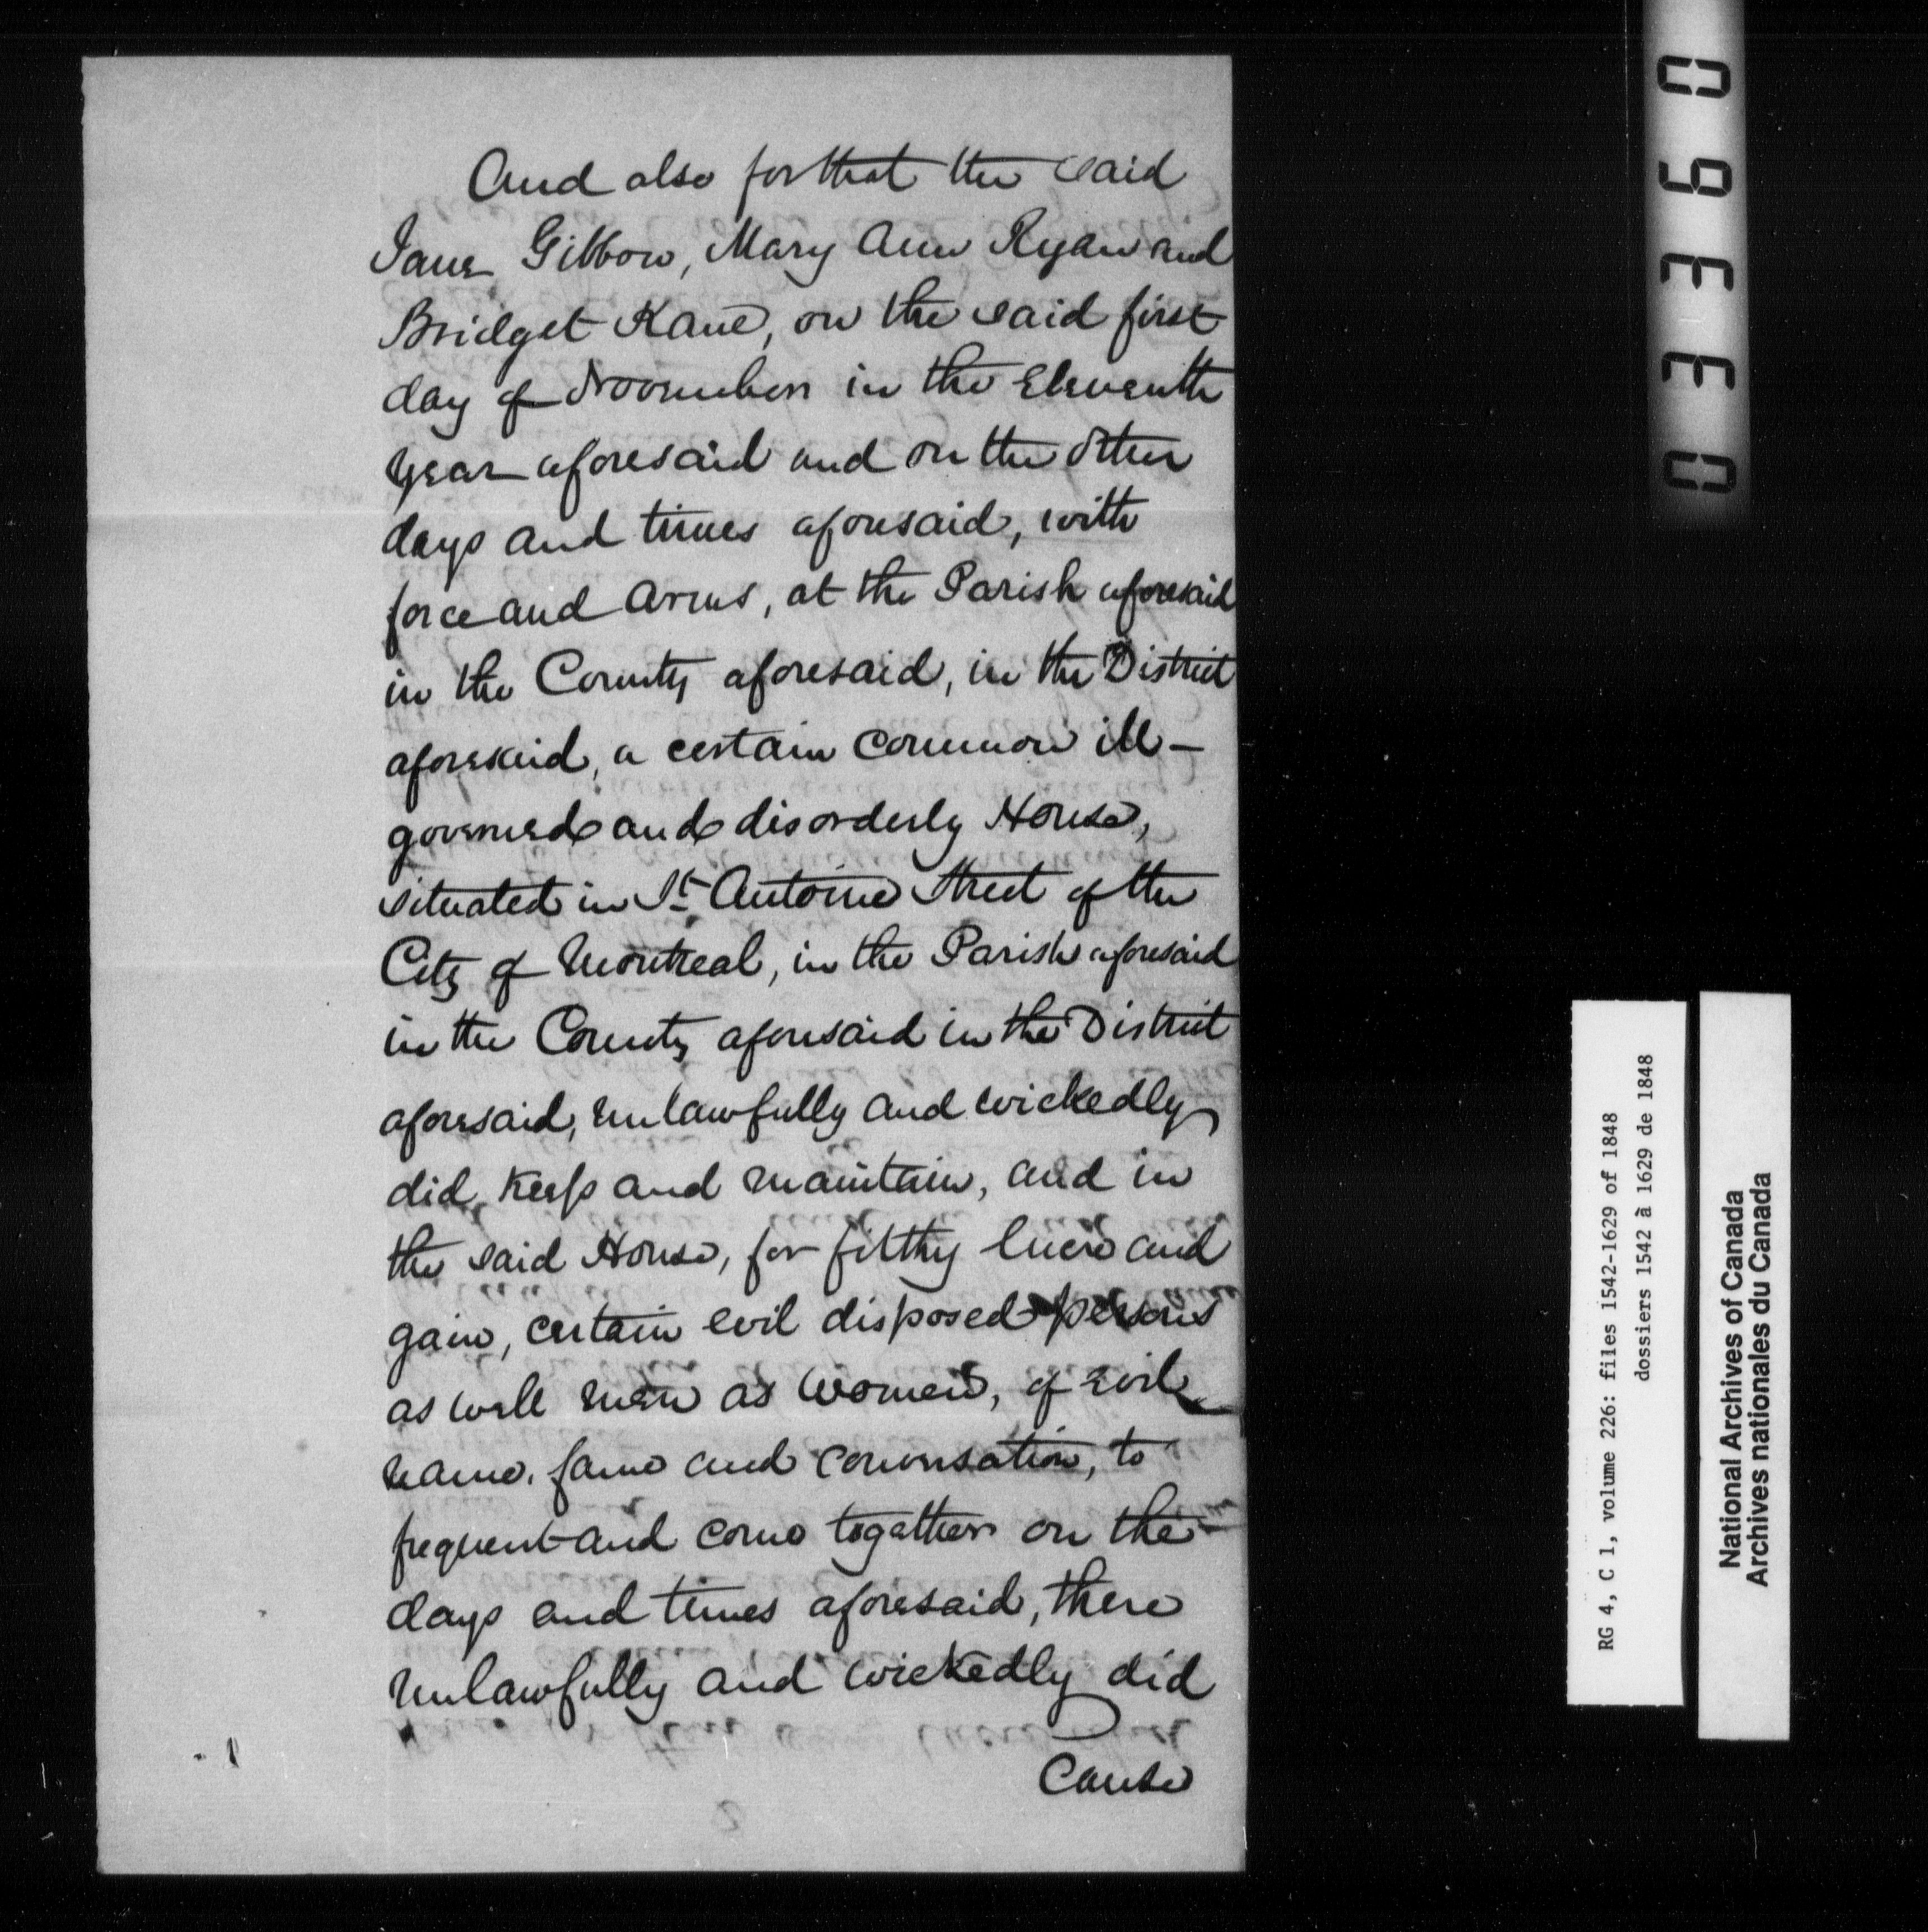 And also for that the said
Jane Gibbon, Mary Ann Ryan and
Bridget Kane, on the said first
day of November in the Eleventh
year aforesaid and on the other
days and times aforesaid, with
force and arms, at the Parish aforesaid
in the County aforesaid, in the District
aforesaid, a certain common ill-
governed and disorderly House,
situated in St Antoine Street of the
City of Montreal, in the Parish aforesaid
in the County aforesaid in the District
aforesaid, unlawfully and wickedly
did, keep and maintain, and in
the said House, for filthy lucre and
gain, certain evil disposed persons
as well men as women, of evil
name, fame and conversation, to
frequent and come together on the
days and times aforesaid, there
unlawfully and wickedly did
Cause
03360
RG 4, C 1, volume 226: files 1542-1629 of 1848
dossiers 1542 à 1629 de 1848
National Archives of Canada
Archives nationales du Canada